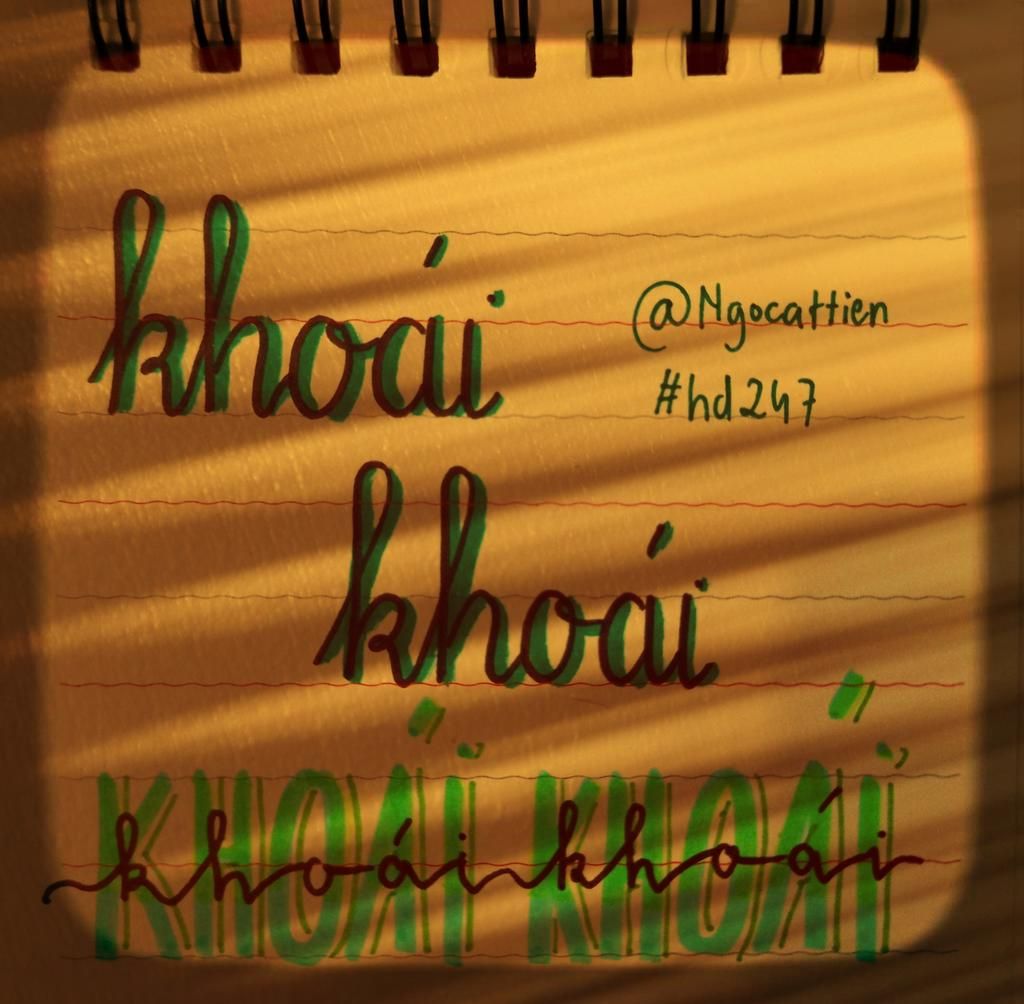 khoái
@Ngocattien
#hd247
khoái
KHOÁI KHOÁI
khoái khoái